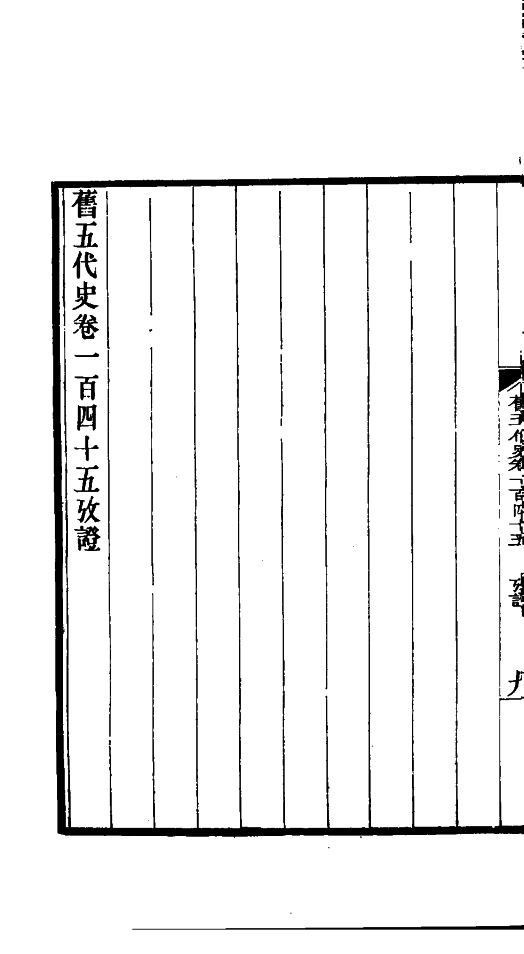 舊五代史卷一百四十五 攷證
舊五代史卷一百四十五攷證